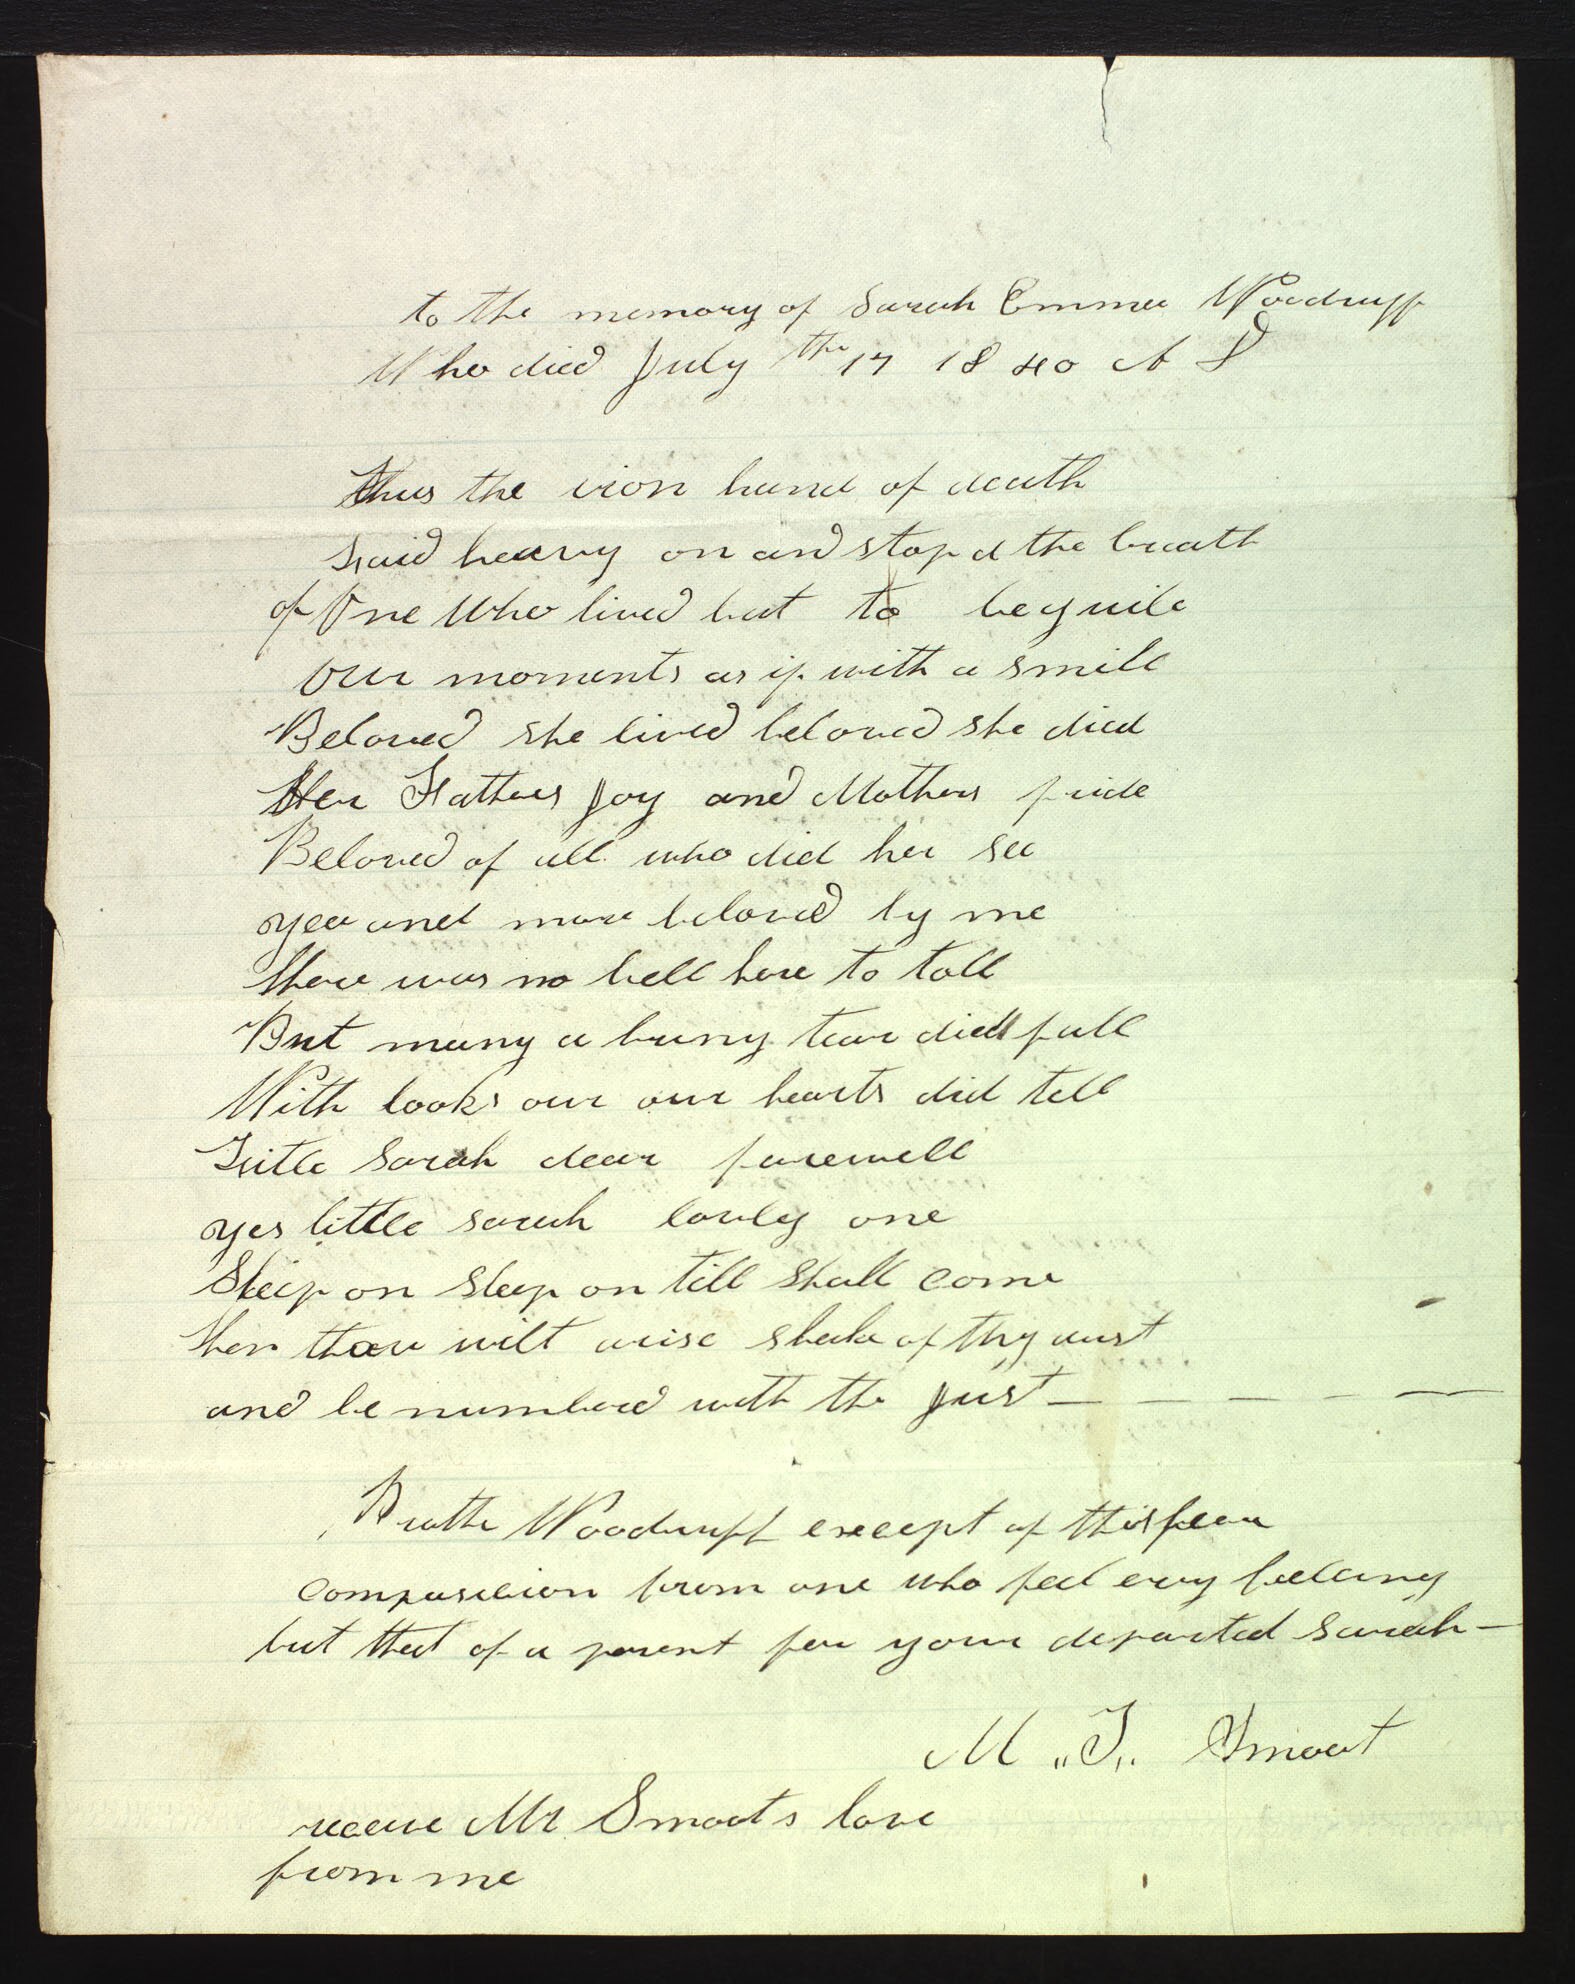 to the memory of Sarah Emma Woodruff
Who died July the 17 1840 A D
Thus the iron hand of death
Laid heavy on and stop d the breath
of One Who lived but to beguile
Our moments as if with a smile
Beloved she lived beloved she died
Her Fathers Joy and Mothers pride
Beloved of all who did her see
yea and more beloved by me
there was no bell here to toll
But many a briny tear did fall
With looks our our hearts did tell
Litle Sarah dear farewell
yes little sarah lovly one
Sleep on sleep on till shall come
then thou wilt arise shake of thy dust
and be numbered with the Just
Bruthe Woodruff except of this few
composision from one who feel evry feelling
but that of a parent for your departed Sarah
M. T. Smoot
receive Mr Smoots love
from me